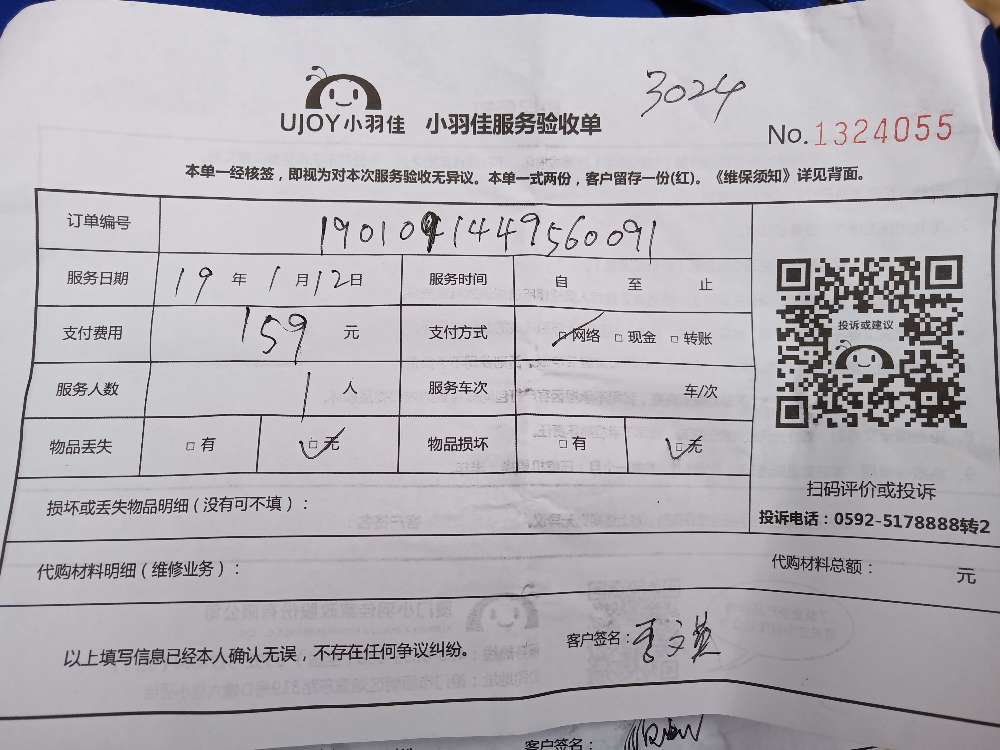 3024
UJOY小羽佳 小羽佳服务验收单
No.1324055
本单一经核签，即视为对本次服务验收无异议。本单一式两份，客户留存一份(红)。《维保须知》详见背面。
订单编号 1901091449560091
服务日期 19 年 1 月 12 日 服务时间 自 至 止
支付费用 159 元 支付方式 □网络 □现金 □转账
投诉或建议
服务人数 1 人 服务车次 车/次
物品丢失 □有 □无 物品损坏 □有 □无
扫码评价或投诉
投诉电话：0592-5178888转2
损坏或丢失物品明细（没有可不填）：
代购材料明细（维修业务）： 代购材料总额： 元
以上填写信息已经本人确认无误，不存在任何争议纠纷。 客户签名：
客户签名：